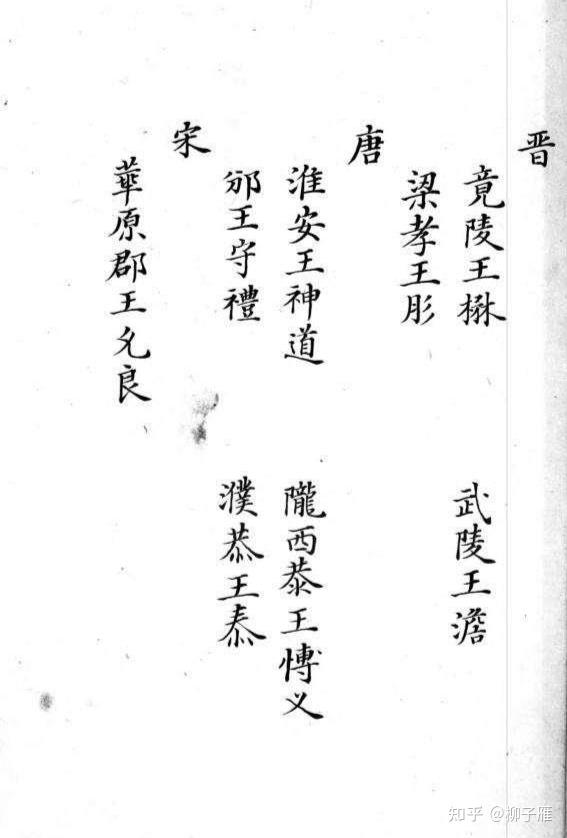 晋
竟陵王楙
武陵王澹
梁孝王肜
唐
淮安王神道
隴西恭王愽义
邠王守禮
濮恭王泰
宋
華原郡王允良
知乎 @柳子雁